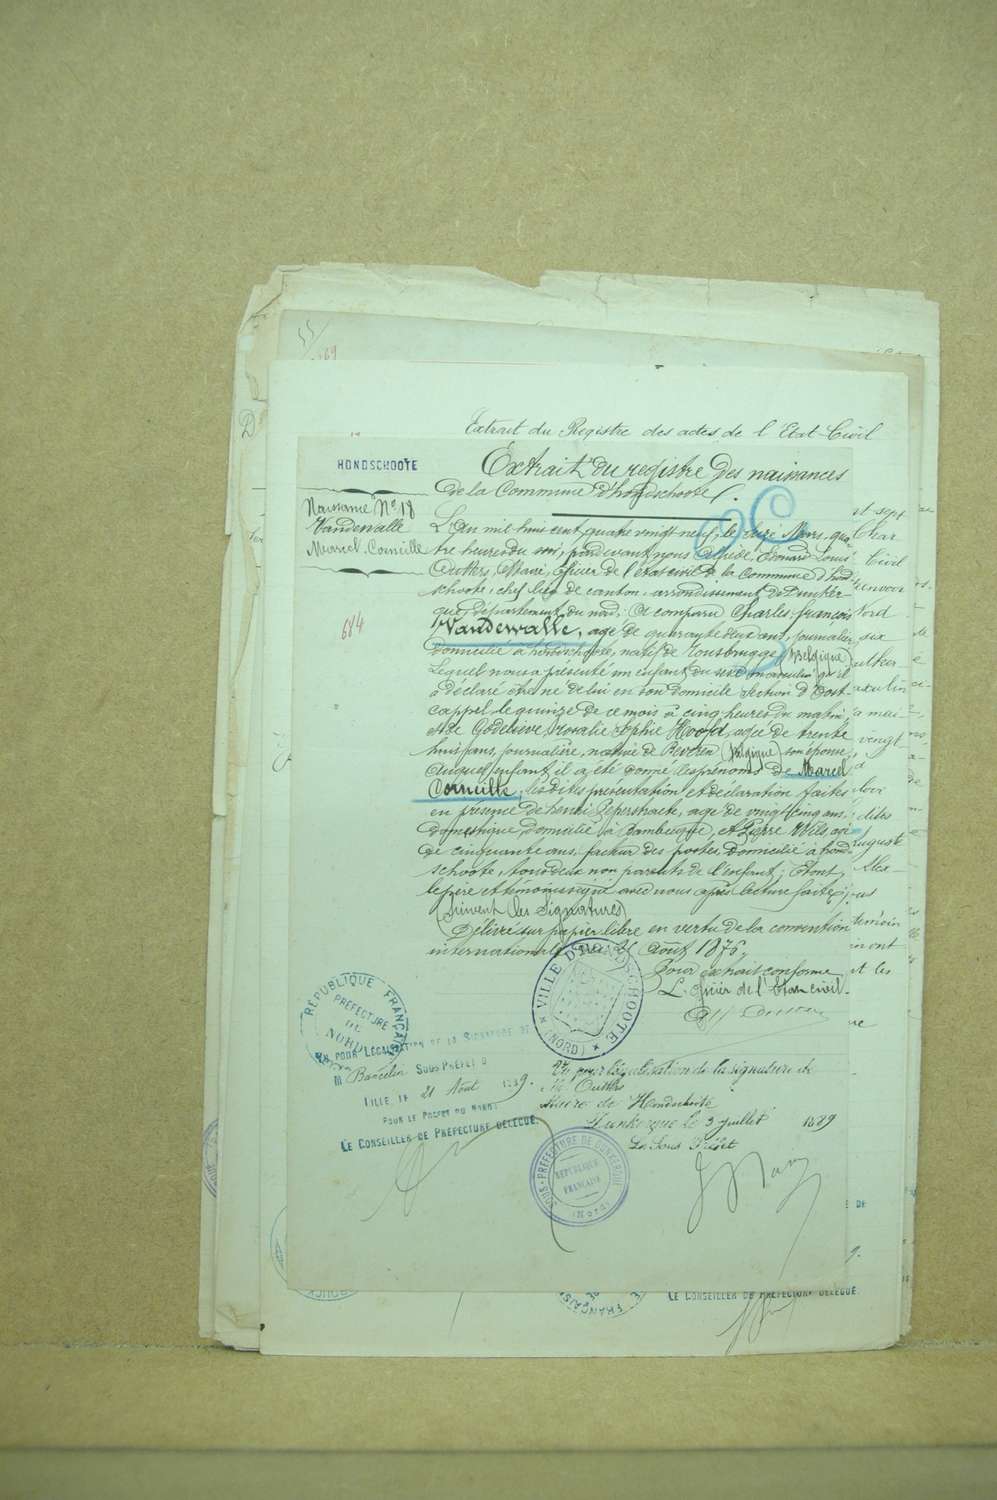 Extrait du Registre des actes de l'Etat-Civil
HONDSCHOOTE
Extrait du registre des naissances
de la Commune d'hondschoote.
Naissance No 18
Vandewalle
Marcel Corneille
684
L'An mil huit cent quatre vingt neuf, le seize Mars, qua
tre heures du soir, pardevant nous Edouard Louis
Outters, Maire, officier de l'état civil de la Commune d'hond
schoote, chef lieu de canton, arrondissement de Dunker
que, département du nord; A comparu Charles françois
Vandewalle, agé de quarante deux ans, journalier
domicilié à hondschoote, natif de Rousbrugge (Belgique)
Lequel nous a présenté un enfant du sexe masculin qu'il
a déclaré être né de lui en son domicile Section d'Oost-
cappel le quinze de ce mois à cinq heures du matin,
et de Godelieve rosalie sophie Hoofd, agée de trente
huit ans, journalière, native de Beveren (Belgique) son épouse,
auquel enfant il a été donné les prénoms de Marcel
Corneille, les dites présentation et déclaration faites
en présence de henri Peperstraete, agé de vingt cinq ans
domestique, domicilié à Bambecque, et Pierre Wils, agé
de cinquante ans, facteur des postes, domicilié à hond
schoote, tous deux non parents de l'enfant; Et ont
le père et témoins signé avec nous après lecture faite
(Suivent les signatures)
Délivré sur papier libre en vertu de la convention
internationale du 25 Août 1876
Pour extrait conforme
L'officier de l'Etat civil
VILLE D'HONDSCHOOTE
(NORD)
RÉPUBLIQUE FRANÇAISE
PRÉFECTURE
DU
NORD
VU POUR LÉGALISATION DE LA SIGNATURE DE
M Bancelin SOUS-PRÉFET D
LILLE LE 21 Aout 1889.
POUR LE PRÉFET DU NORD:
LE CONSEILLER DE PRÉFECTURE DÉLÉGUÉ.
Vu pour légalisation de la signature de
M. Outters
Maire de Hondschoote
Dunkerque le 3 juillet 1889
Le Sous Préfet
SOUS-PRÉFECTURE DE DUNKERQUE
RÉPUBLIQUE
FRANÇAISE
(Nord)
LE CONSEILLER DE PRÉFECTURE DÉLÉGUÉ.